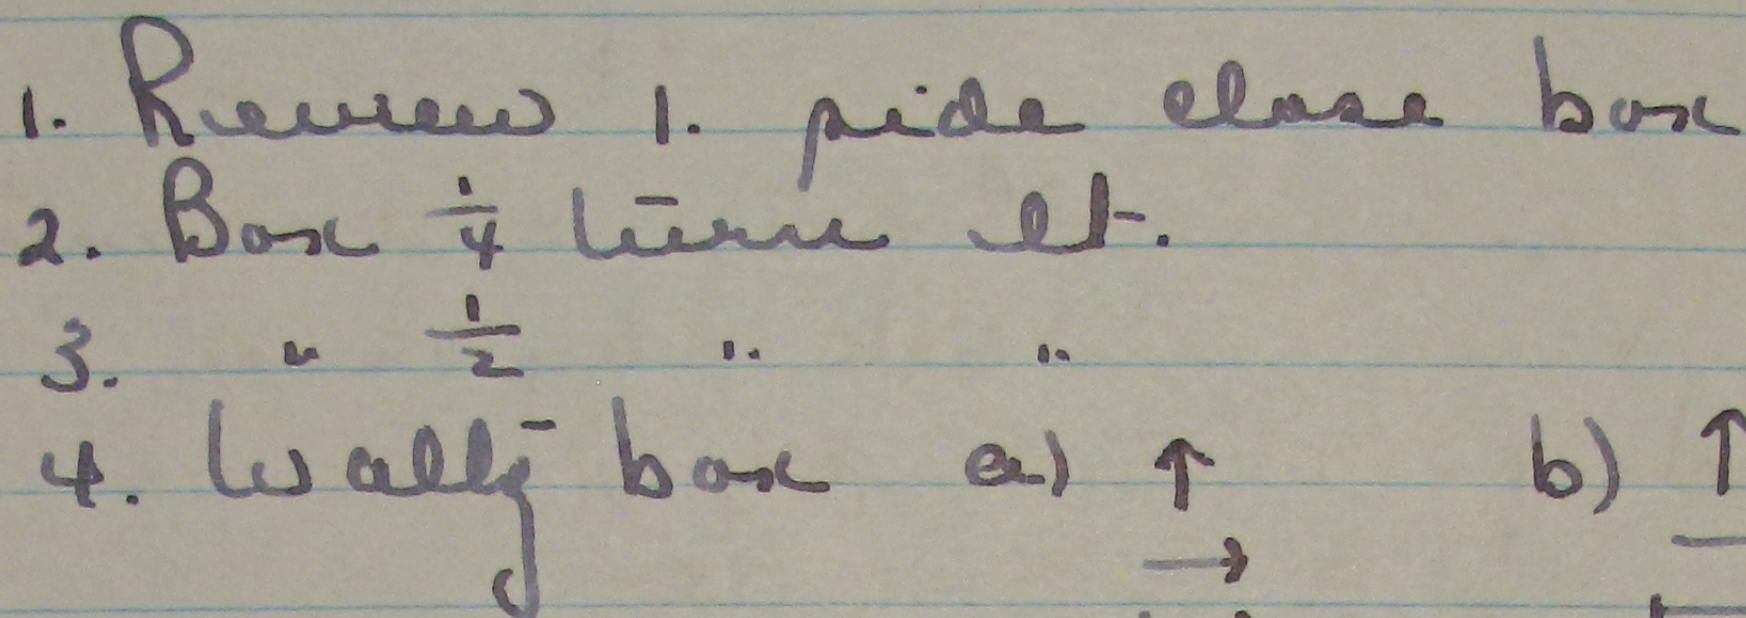 1. Review 1. side close box
2. Box 1/4 turn lt.
3. " 1/2 " "
4. Waltz box a) ↑ b) ↑
→